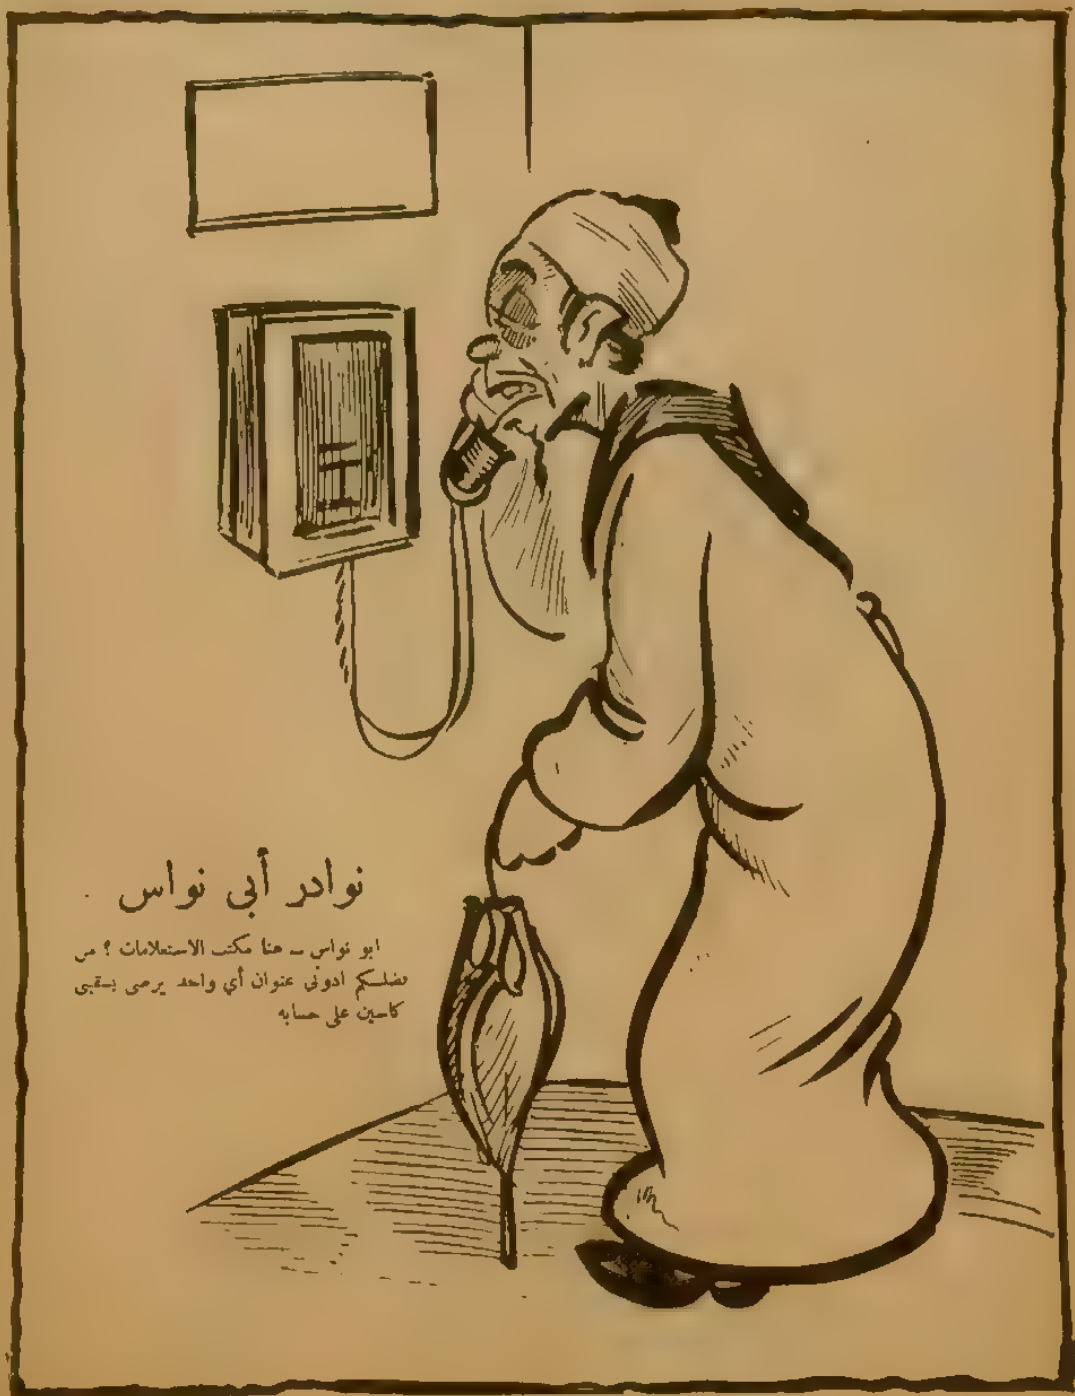 نوادر أبى نواس
ابو نواس — هنا مكتب الاستعلامات ؟ من
فضلكم ادونى عنوان أي واحد يرضى يسقينى
كاسين على حسابه